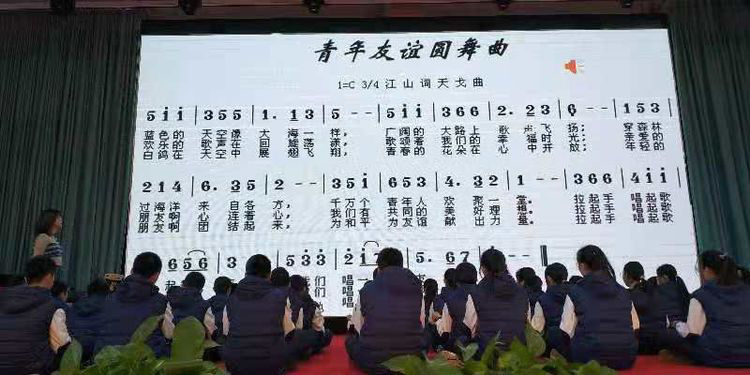 青年友谊圆舞曲
1=C 3/4 江山词天戈曲
5 i i | 3 5 5 | 1. 1 3 | 5 - - | 5 i i | 3 6 6 | 2. 2 3 | 6 - - | 1 5 3 |
蓝色的 天空像 大海一样, 广阔的 大路上 歌声飞扬; 穿森林
欢乐的 歌声在 回旋荡漾, 歌颂着 我们的 幸福时光;
白鸽在 天空中 展翅飞翔, 青春的 花朵在 心中开放; 年轻的
2 1 4 | 6. 3 5 | 2 - - | 3 5 i | 3 6 1 | 4. 3 2 | 1 - - | 3 6 6 | 4 1 4 |
过海洋 来自各方, 千万个 青年人 欢聚一堂。 拉起手 唱起歌
朋友啊 心连着心, 我们有 共同的 美好理想。 拉起手 唱起歌
朋友啊 团结起来, 为和平 为友谊 献出力量。 拉起手 唱起歌
6 5 6 | 3